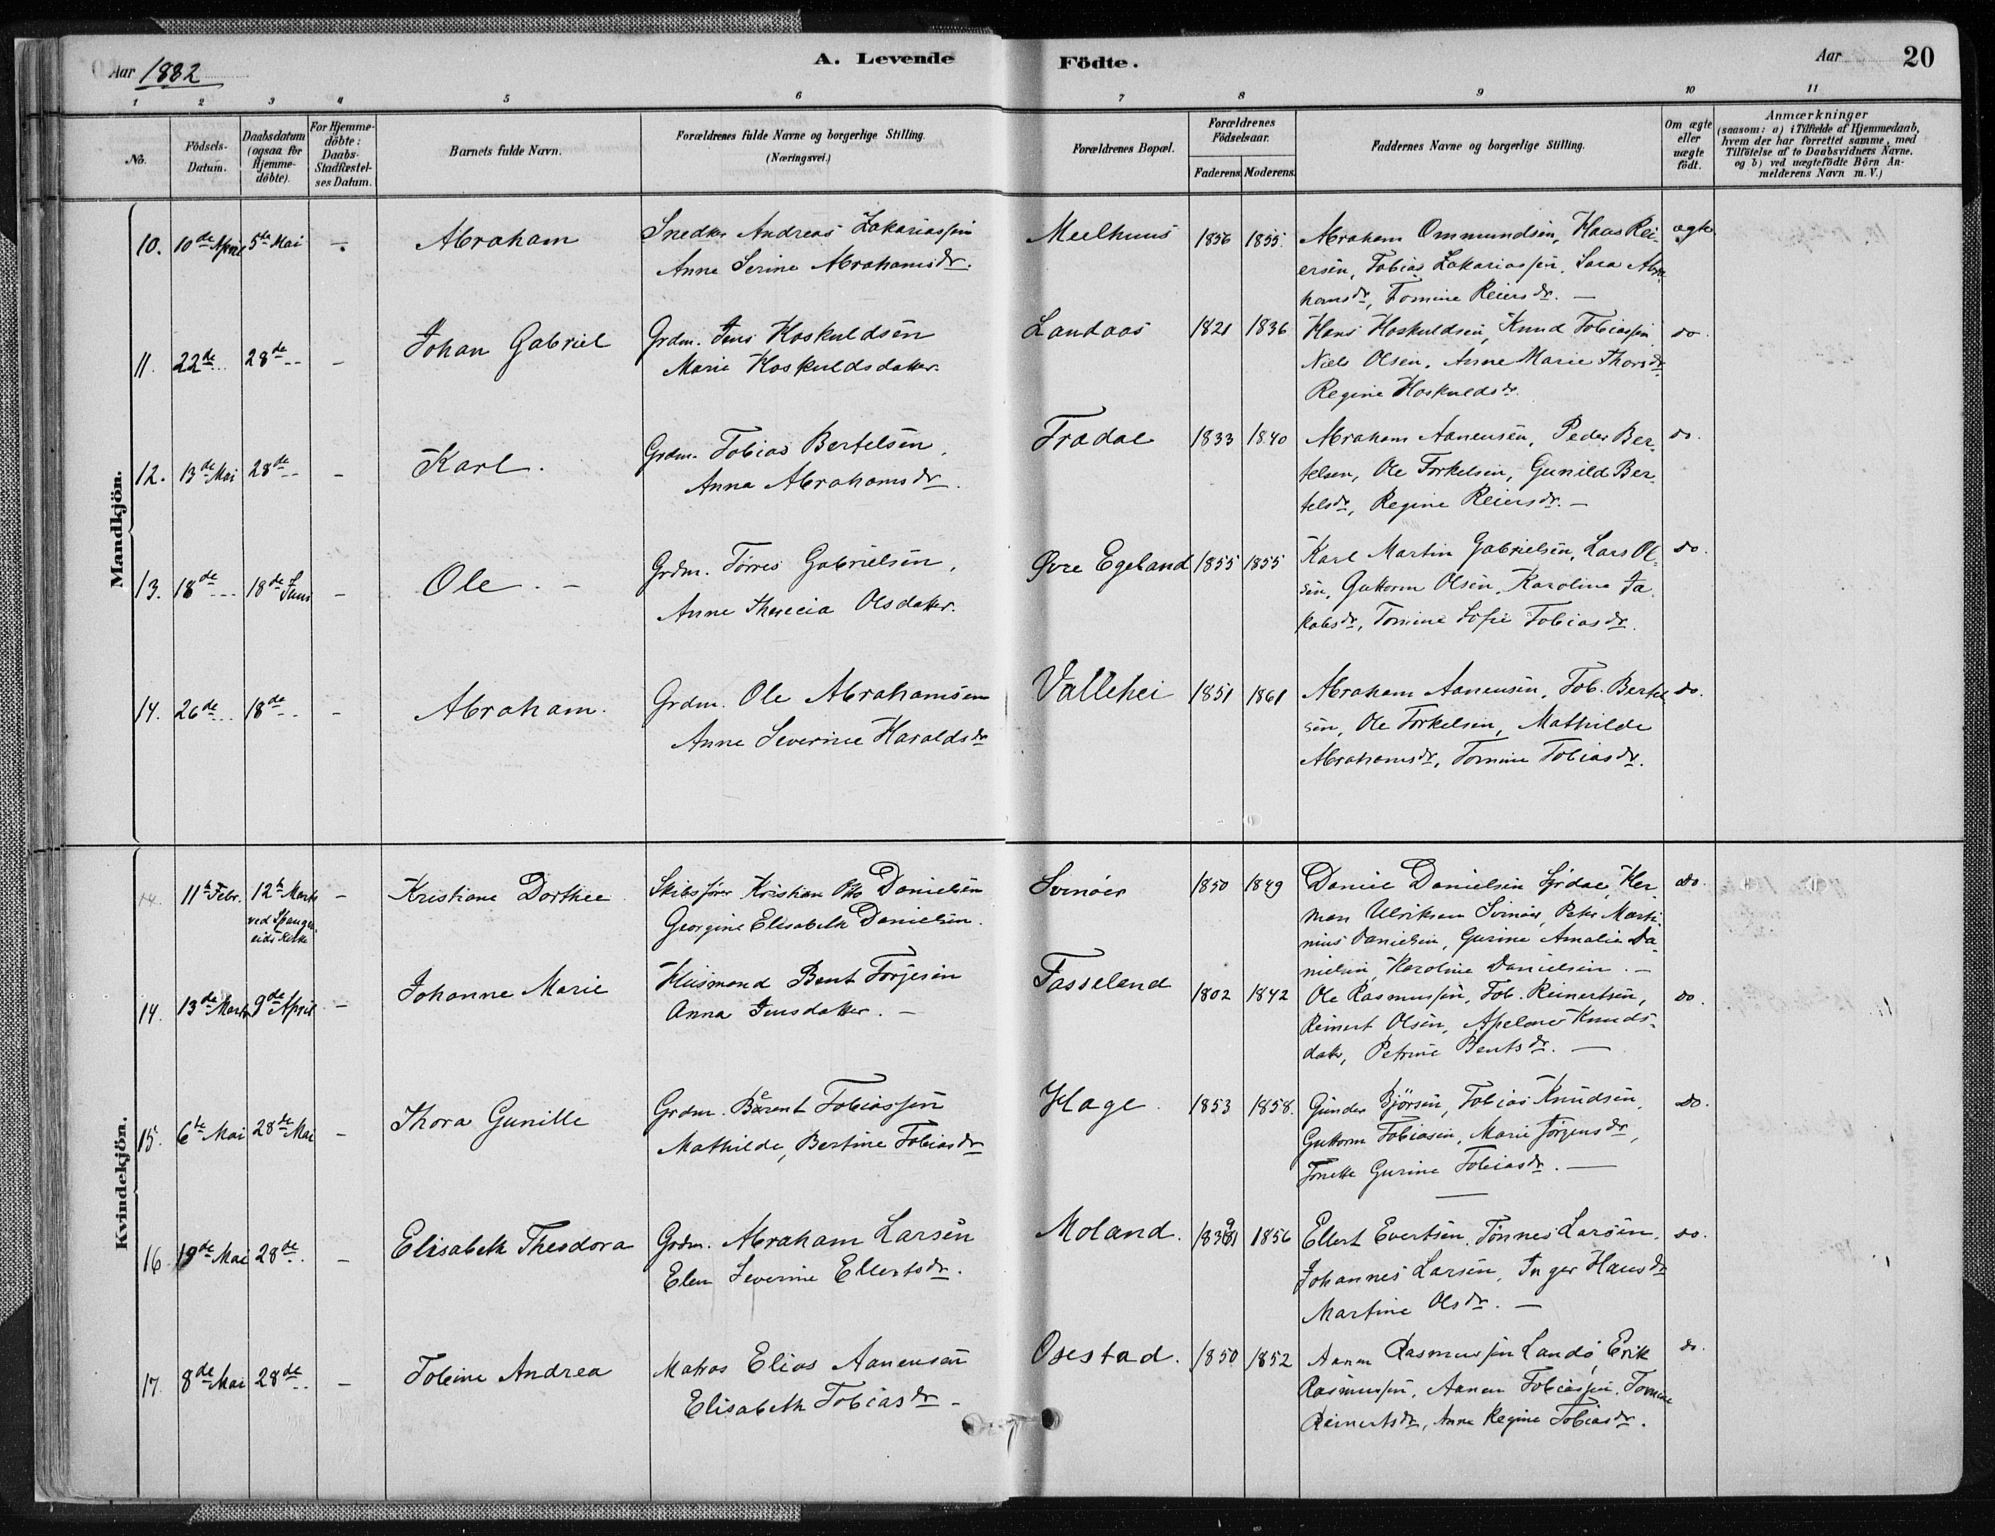 Aar 1882
A. Levende Födte.
Aar
20
1 2 3 4 5 6 7 8 9 10 11
No.
Födsels-Datum.
Daabsdatum (ogsaa for Hjemmedöbte).
For Hjemmedöbte: Daabs-Stadfæstelses Datum.
Barnets fulde Navn.
Forældrenes fulde Navne og borgerlige Stilling. (Næringsvei.)
Forældrenes Bopæl.
Forældrenes Födselsaar.
Faderens. Moderens.
Faddernes Navne og borgerlige Stilling.
Om ægte eller uægte födt.
Anmærkninger
(saasom: a) i Tilfælde af Hjemmedaab, hvem der har forrettet samme, med Tilföielse af to Daabsvidners Navne. og b) ved uægtefödte Börn Anmelderens Navn m. V.)
Mandkjön.
10. 10de April 5te Mai - Abraham
Snedker Andreas Zakariassen
Anne Serine Abrahamsdr.
Meelhuus 1856 1855.
Abraham Ommundsen, Haas Rei-
ersen, Tobias Zakariassen, Sara Abra
hamsdr, Tomine Reiersdr. —
ægte
11. 22de 28de - Johan Gabriel
Grdm. Jens Hoskuldsen
Marie Hoskuldsdatter.
Landaas 1821 1836
Hans Hoskuldsen, Knud Tobiassen
Niels Olsen, Anne Marie Thorsdr
Regine Hoskuldsdr.
do.
12. 13de Mai 28de - Karl.
Grdm. Tobias Bertelsen.
Anna Abrahamsdr.
Fradal 1833 1840
Abraham Aanensen, Peder Ber-
telsen, Ole Torkelsen, Gunild Ber-
telsdr, Regine Reiersdr. —
do.
13. 18de 18de Juni - Ole. —
Grdm. Tørres Gabrielsen,
Anne Therecia Olsdatter.
Øvre Egeland 1855 1855
Karl Martin Gabrielsen, Lars Ol-
sen, Guttorm Olsen, Karoline Ja-
kobsdr, Tomine Sofie Tobiasdr.
do.
14. 26de 18de - Abraham.
Grdm. Ole Abrahamsen
Anne Severine Haraldsdr
Vallehei 1851 1861
Abraham Aanensen, Tob. Bertel
sen, Ole Torkelsen, Mathilde
Abrahamsdr, Tomine Tobiasdr.
do.
Kvindekjön.
14. 11te Febr. 12te Marts ved Spangereids Kirke - Kristiane Dorthee
Skibsfører Kristian Otto Danielsen
Georgine Elisabeth Danielsen.
Svinøer 1850 1849
Daniel Danielsen Syrdal, Her-
man Ulriksen Svinøer, Peter Marti-
nius Danielsen, Gurine Amalie Da-
nielsen, Karoline Danielsen. —
do.
14. 13de Marts 9de April - Johanne Marie
Husmand Bent Torjesen
Anna Jensdatter. —
Tasseland 1802 1842
Ole Rasmussen, Tob. Reinertsen,
Reinert Olsen, Apelone Knuds-
datr, Petrine Bentsdr. —
do.
15. 6te Mai 28de Mai - Thora Gunille
Grdm. Bärent Tobiassen
Mathilde, Bertine Tobiasdr
Hage. 1853 1858.
Gunder Bjørsen, Tobias Knudsen,
Guttorm Tobiasen, Marie Jörgensdr,
Tonette Gurine Tobiasdr. —
do.
16. 19de Mai 28de - Elisabeth Theodora
Grdm. Abraham Larsen
Elen Severine Ellertsdr.
Moland. 1856
Ellert Evertsen, Tønnes Larsen,
Johannes Larsen, Inger Hansdr
Martine Olsdr. —
do.
17. 8de Mai 28de - Tobine Andrea
Matros Elias Aanensen
Elisabeth Tobiasdr —
Osestad. 1850 1852
Aanen Rasmussen Landö, Erik
Rasmussen, Aanen Tobiassen, Tomine
Reinertsdr, Anne Regine Tobiasdr.
do.